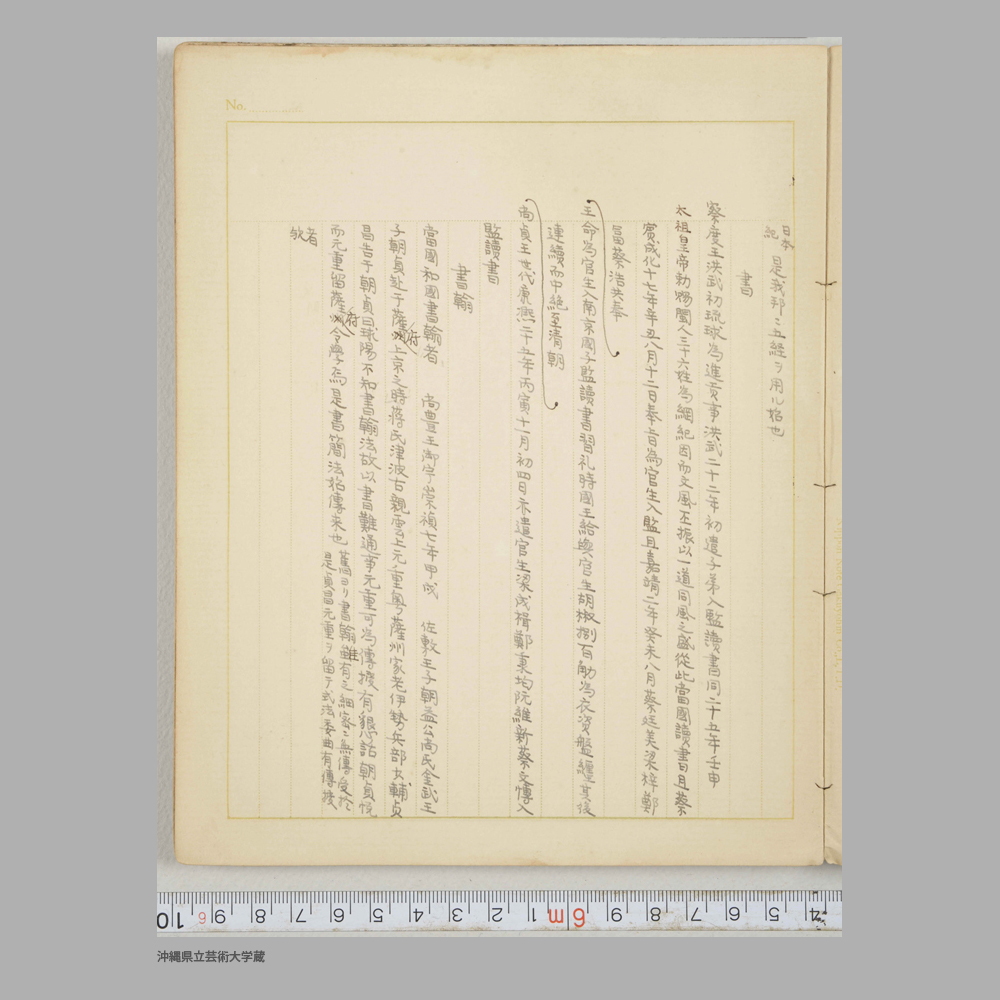 No.
日本紀 是我邦ニ五経ヲ用ル始也
書
察度王洪武初琉球為進貢事洪武二十二年初遣子弟入監讀書同二十五年壬申
太祖皇帝勅賜閩人三十六姓為綱紀因而文風丕振以一道同風之盛從此當國讀書且蔡
賓成化十七年辛丑八月十二日奉旨為官生入監且嘉靖二年癸未八月蔡廷美梁梓鄭
冨蔡浩共奉
王命為官生入南京國子監讀書習礼時國王給與官生胡椒捌百觔為衣資盤纏其後
連續而中絶至清朝
尚貞王世代康熙二十五年丙寅十一月初四日亦遣官生梁成楫鄭秉均阮維新蔡文溥入
監讀書
書翰
當國和國書翰者 尚豊王御宇崇禎七年甲戌 佐敷王子朝益公尚氏金武王
子朝貞赴于薩州府上京之時蔣氏津波古親雲上元重粤薩州家老伊勢兵部少輔貞
昌告于朝貞曰球陽不知書翰法故以書難通事元重可為傳授有懇話朝貞悦
而元重留薩州府令學焉是書簡法始傳來也 舊ヨリ書翰雖有之細密ニ無傳受於
是貞昌元重ヲ留于式法委曲有傳授
者欤
10 9 8 7 6 5 4 3 2 1 6m 9 8 7 6 5 4
沖縄県立芸術大学蔵